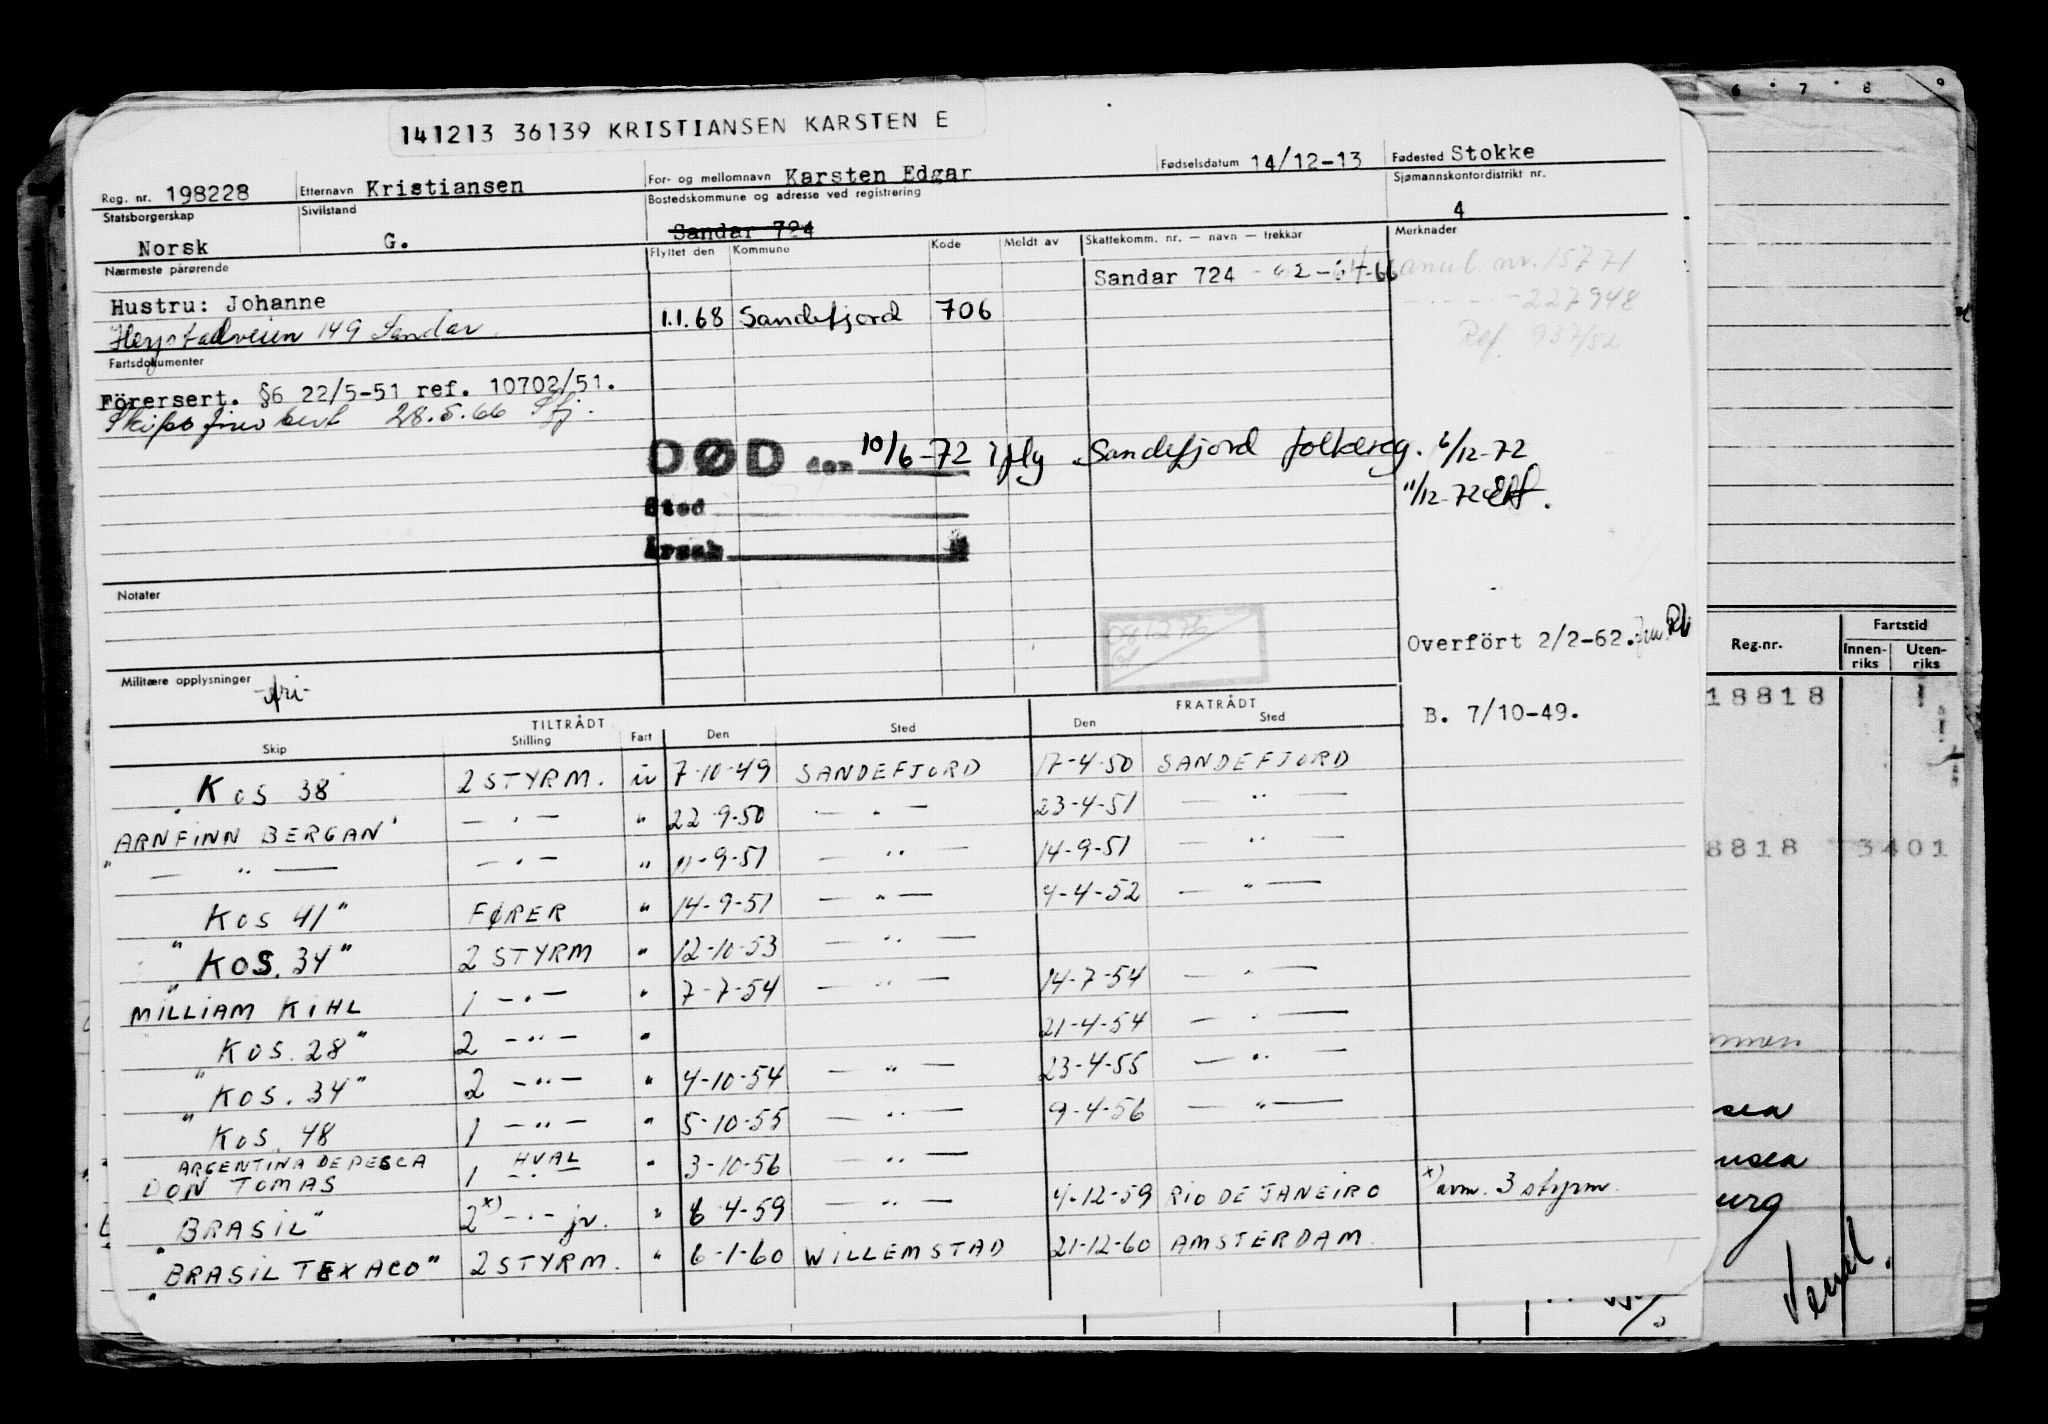 141213 36139 KRISTIANSEN KARSTEN E
Reg. nr. 198228 Etternavn Kristiansen For- og mellomnavn Karsten Edgar Fødselsdatum 14/12-13 Fødested Stokke
Statsborgerskap Norsk Sivilstand G. Bostedskommune og adresse ved registrering Sandar 724 Sjømannskontordistrikt nr. 4
Nærmeste pårørende Flyttet den Kommune Kode Meldt av Skattekomm. nr. — navn — trekkår Merknader
Sandar 724 - 62-64-66 anul. nr. 15771
Hustru: Johanne 1.1.68 Sandefjord 706 227948
149 Sandar Ref. 937/52
Fartsdokumenter
Førersert. §6 22/5-51 ref. 10702/51.
28.5.66
DØD den 10/6-72 iflg Sandefjord folkereg. 6/12-72
11/12-72
Sted
Årsak
Notater
Overført 2/2-62.
Militære opplysninger -fri-
B. 7/10-49.
TILTRÅDT FRATRÅDT
Skip Stilling Fart Den Sted Den Sted
"KOS 38" 2 STYRM. u 7-10-49 SANDEFJORD 17-4-50 SANDEFJORD
"ARNFINN BERGAN" — " — " 22-9-50 — " — 23-4-51 — " —
— " — — " — " 11-9-51 — " — 14-9-51 — " —
"KOS 41" FØRER " 14-9-51 — " — 4-4-52 — " —
"KOS. 34" 2 STYRM " 12-10-53 — " —
MILLIAM KIHL 1 — " — " 7-7-54 — " — 14-7-54 — " —
"KOS. 28" 2 — " — " 21-4-54 — " —
"KOS. 34" 2 — " — " 4-10-54 — " — 23-4-55 — " —
"KOS. 48 1 — " — " 5-10-55 — " — 9-4-56 — " —
ARGENTINA DE PESCA HVAL
DON TOMAS 1 — " — " 3-10-56 — " —
"BRASIL" 2 x) — " — jr. " 6-4-59 — " — 4-12-59 RIO DE JANEIRO x) avm. 3 styrm.
"BRASIL TEXACO" 2 STYRM. " 6-1-60 WILLEMSTAD 21-12-60 AMSTERDAM.
6 7 8 9
Reg.nr. Fartstid
Innen-riks Uten-riks
18818
8818 3401